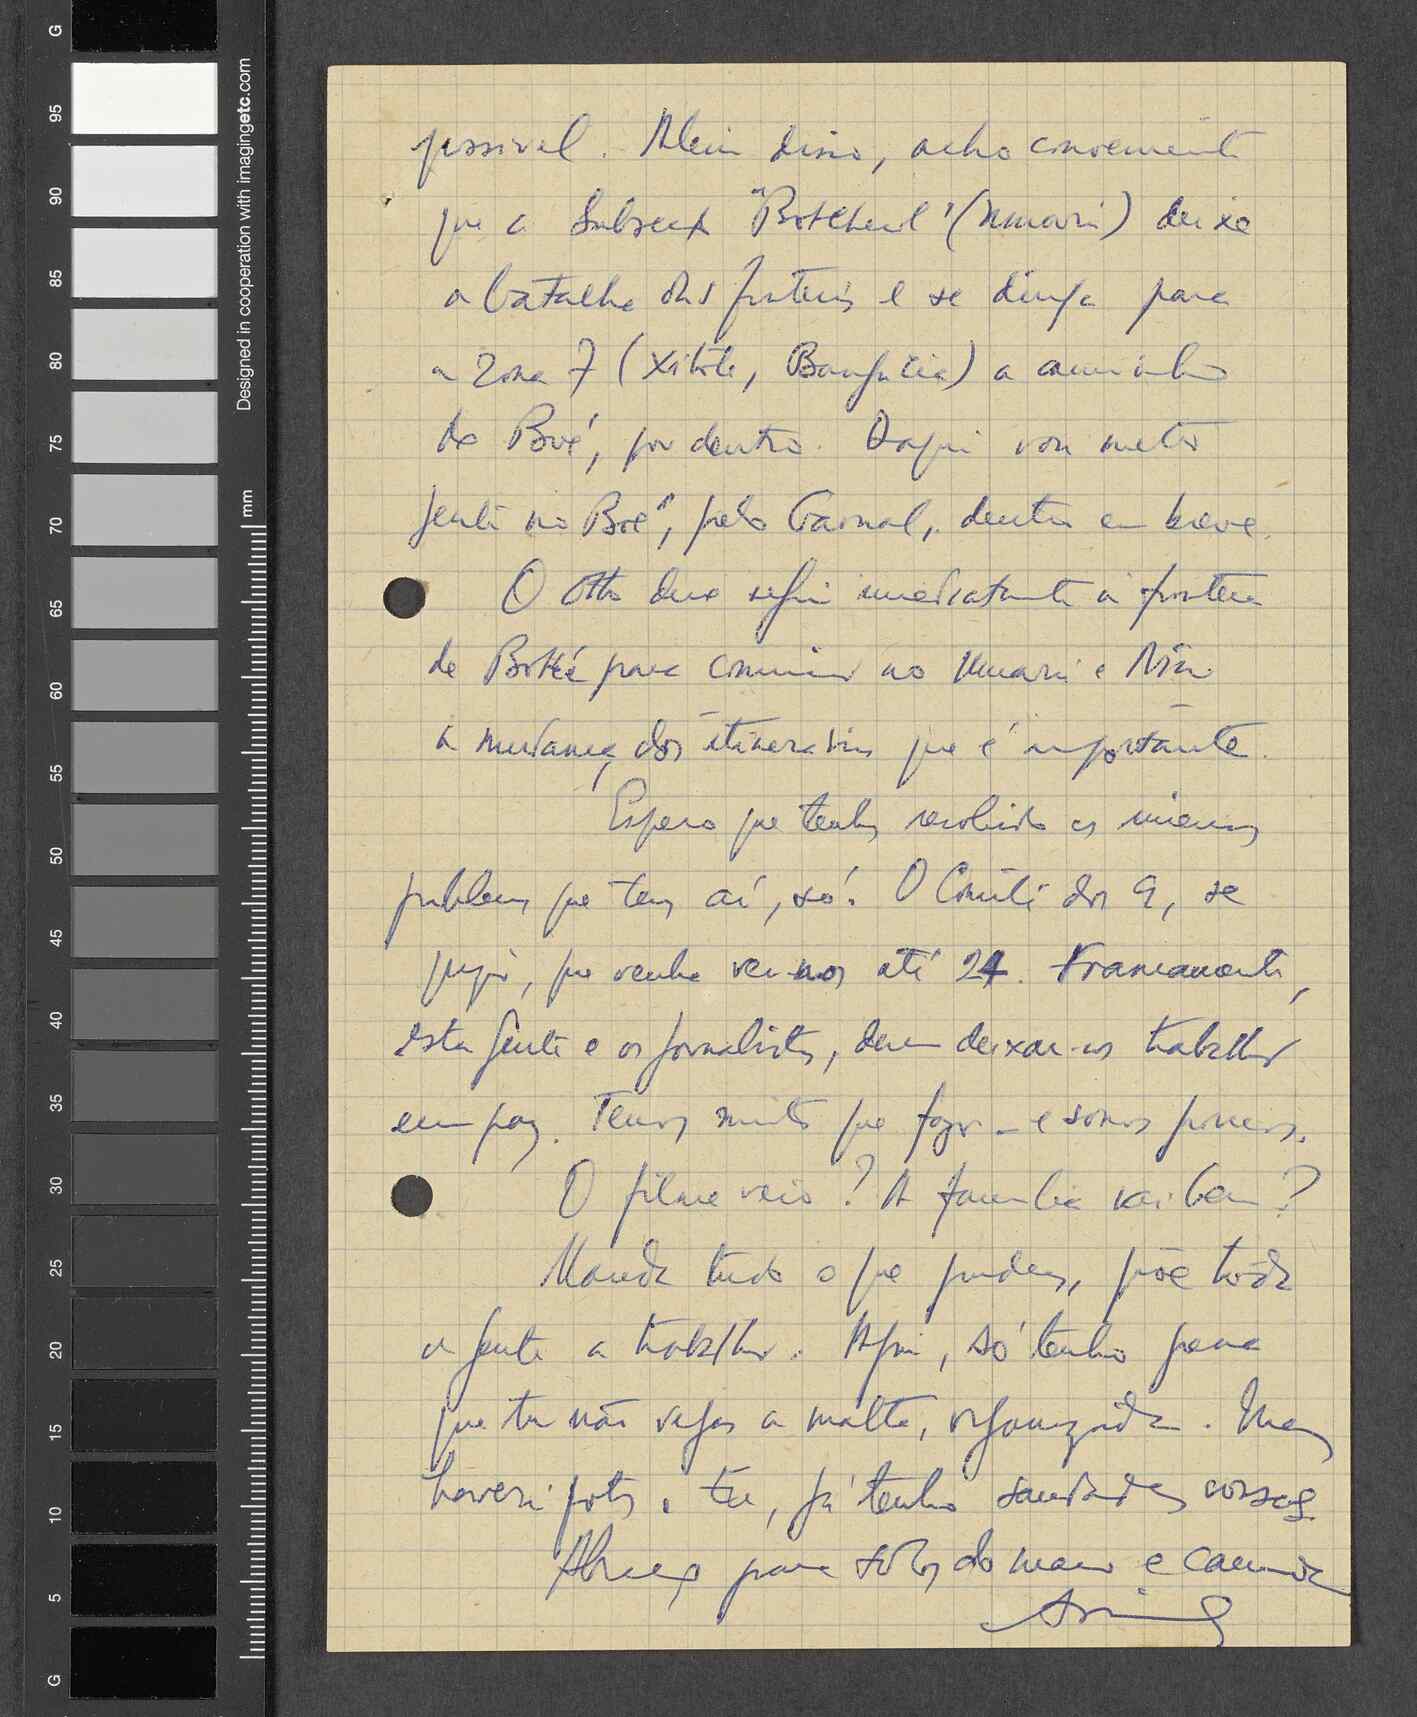 possivel. Alem disso, acho conveniente
que a Subsecç "Botchecul" (Umarú) deixe
a batalha das fronteiras e se dirija para
a Zona 7 (Xitole, Banjucia) a caminho
do Boé, por dentro. Daqui vou meter
gente no Boé, pelo Gaoual, dentro em breve.
O Otto deve seguir imediatamente à fronteira
de Botké para comunicar ao Umarú e Nino
a mudança dos itinerários que é importante.
Espero que tenhas resolvido os inúmeros
problemas que tens aí, só! O Comité dos 9, se
que venha ver-nos até 24. Francamente,
esta gente e os jornalistas, devem deixar-nos trabalhar
em paz. Temos muito que fazer — e somos poucos.
O filme veio? A familia vai bem?
Manda tudo o que puderes, põe toda
a gente a trabalhar. Aqui, só tenho pena
que tu não vejas a malta, organizada. Mas
haverá fotos. Eu, já tenho saudades vossas.
Abraço para todos do mano e camarada
G
95
90
85
80
75
70
65
60
55
50
45
40
35
30
25
20
15
10
5
G
mm
Designed in cooperation with imagingetc.com